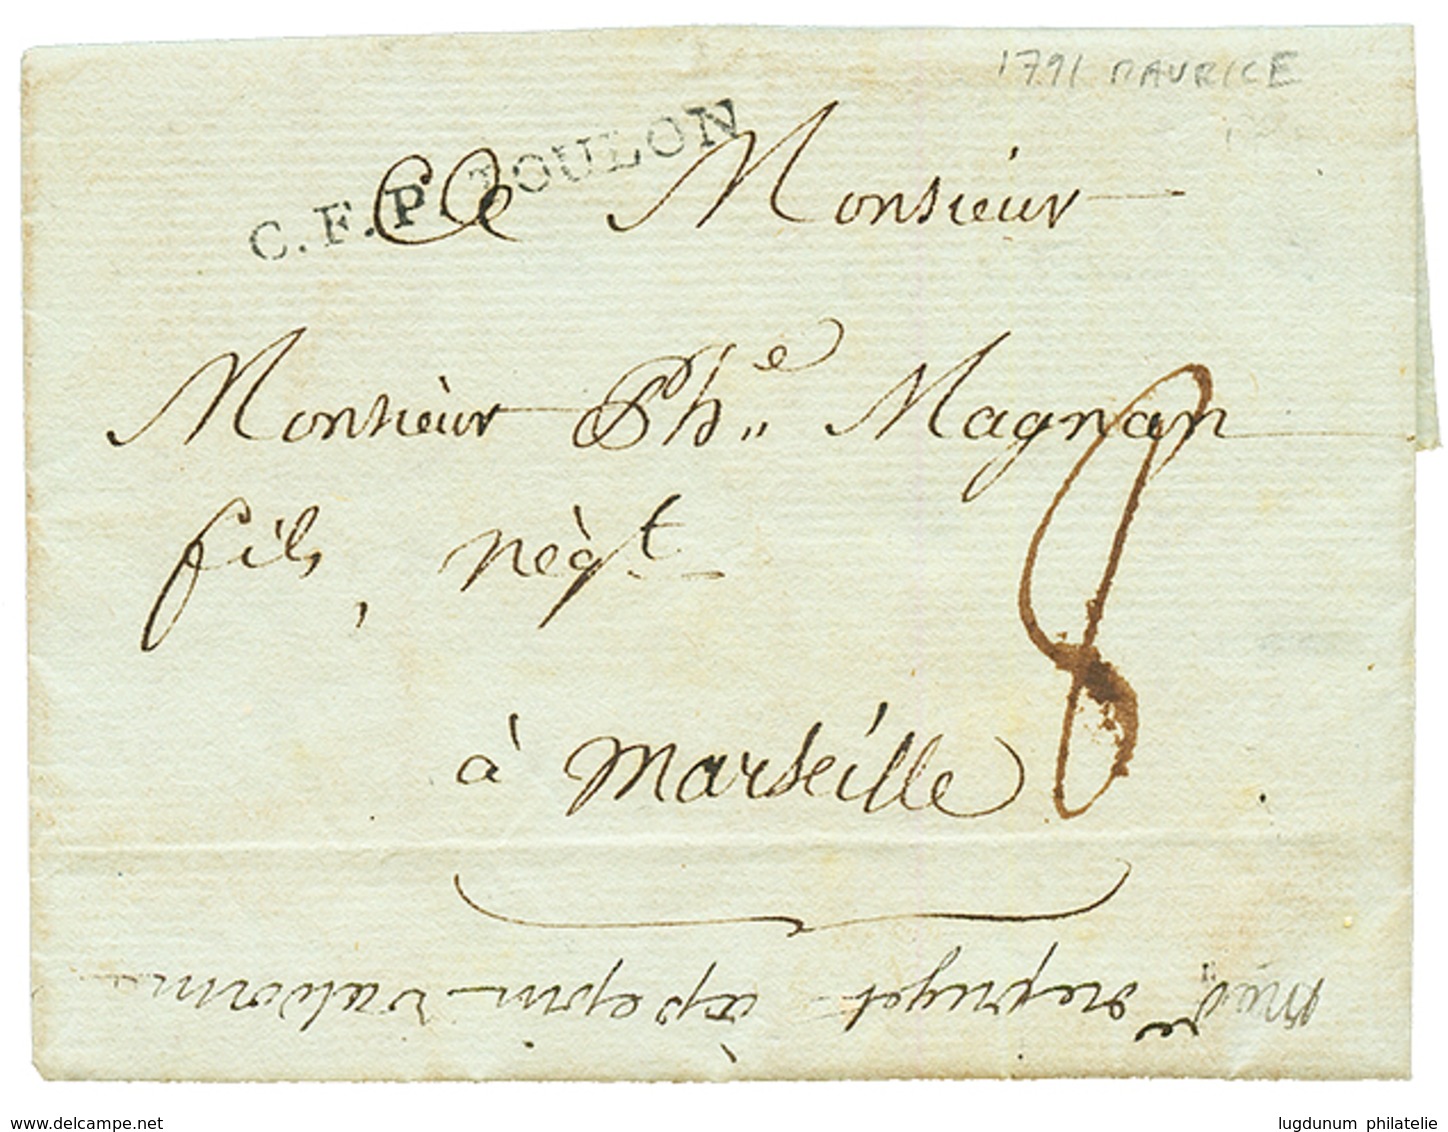 1791 MAURICE
C.F.P. TOULON
A Monsieur
Monsieur Phe Magnan
fils, négt
à Marseille
www.delcampe.net
lugdunum philatelie